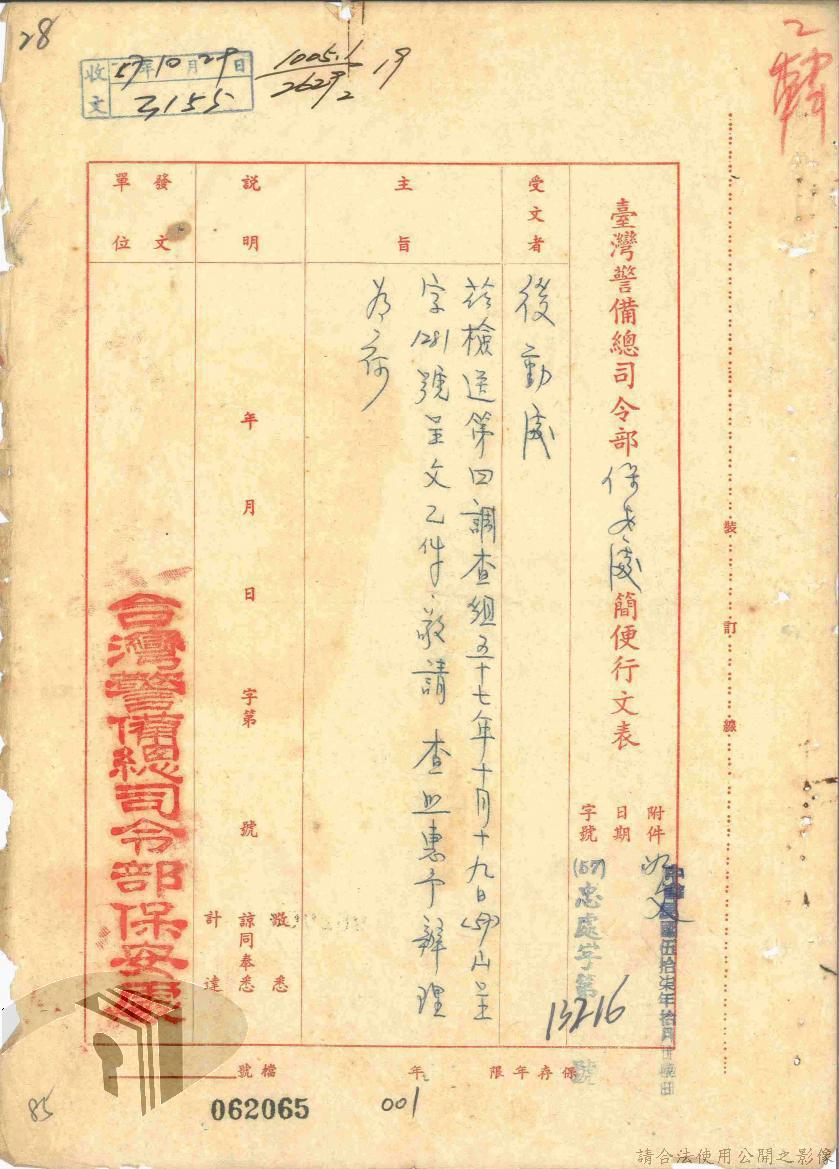 28
收文 57年10月29日
3155
1005.1
2629 19
2
臺灣警備總司令部保安處簡便行文表
附件 如文
日期 中華民國伍拾柒年拾月 日
字號 (57)忠處字第13216號
受文者 後勤處
主旨
茲檢送第四調查組五十七年十月十九日(57)山呈
字1281號呈文乙件,敬請 查照惠予辦理
為荷
說明
年 月 日 字第 號 敬悉 諒同奉悉 計達
發文單位
台灣警備總司令部保安處
裝 訂 線
保存年限 年
檔號
062065
001
85
請合法使用公開之影像